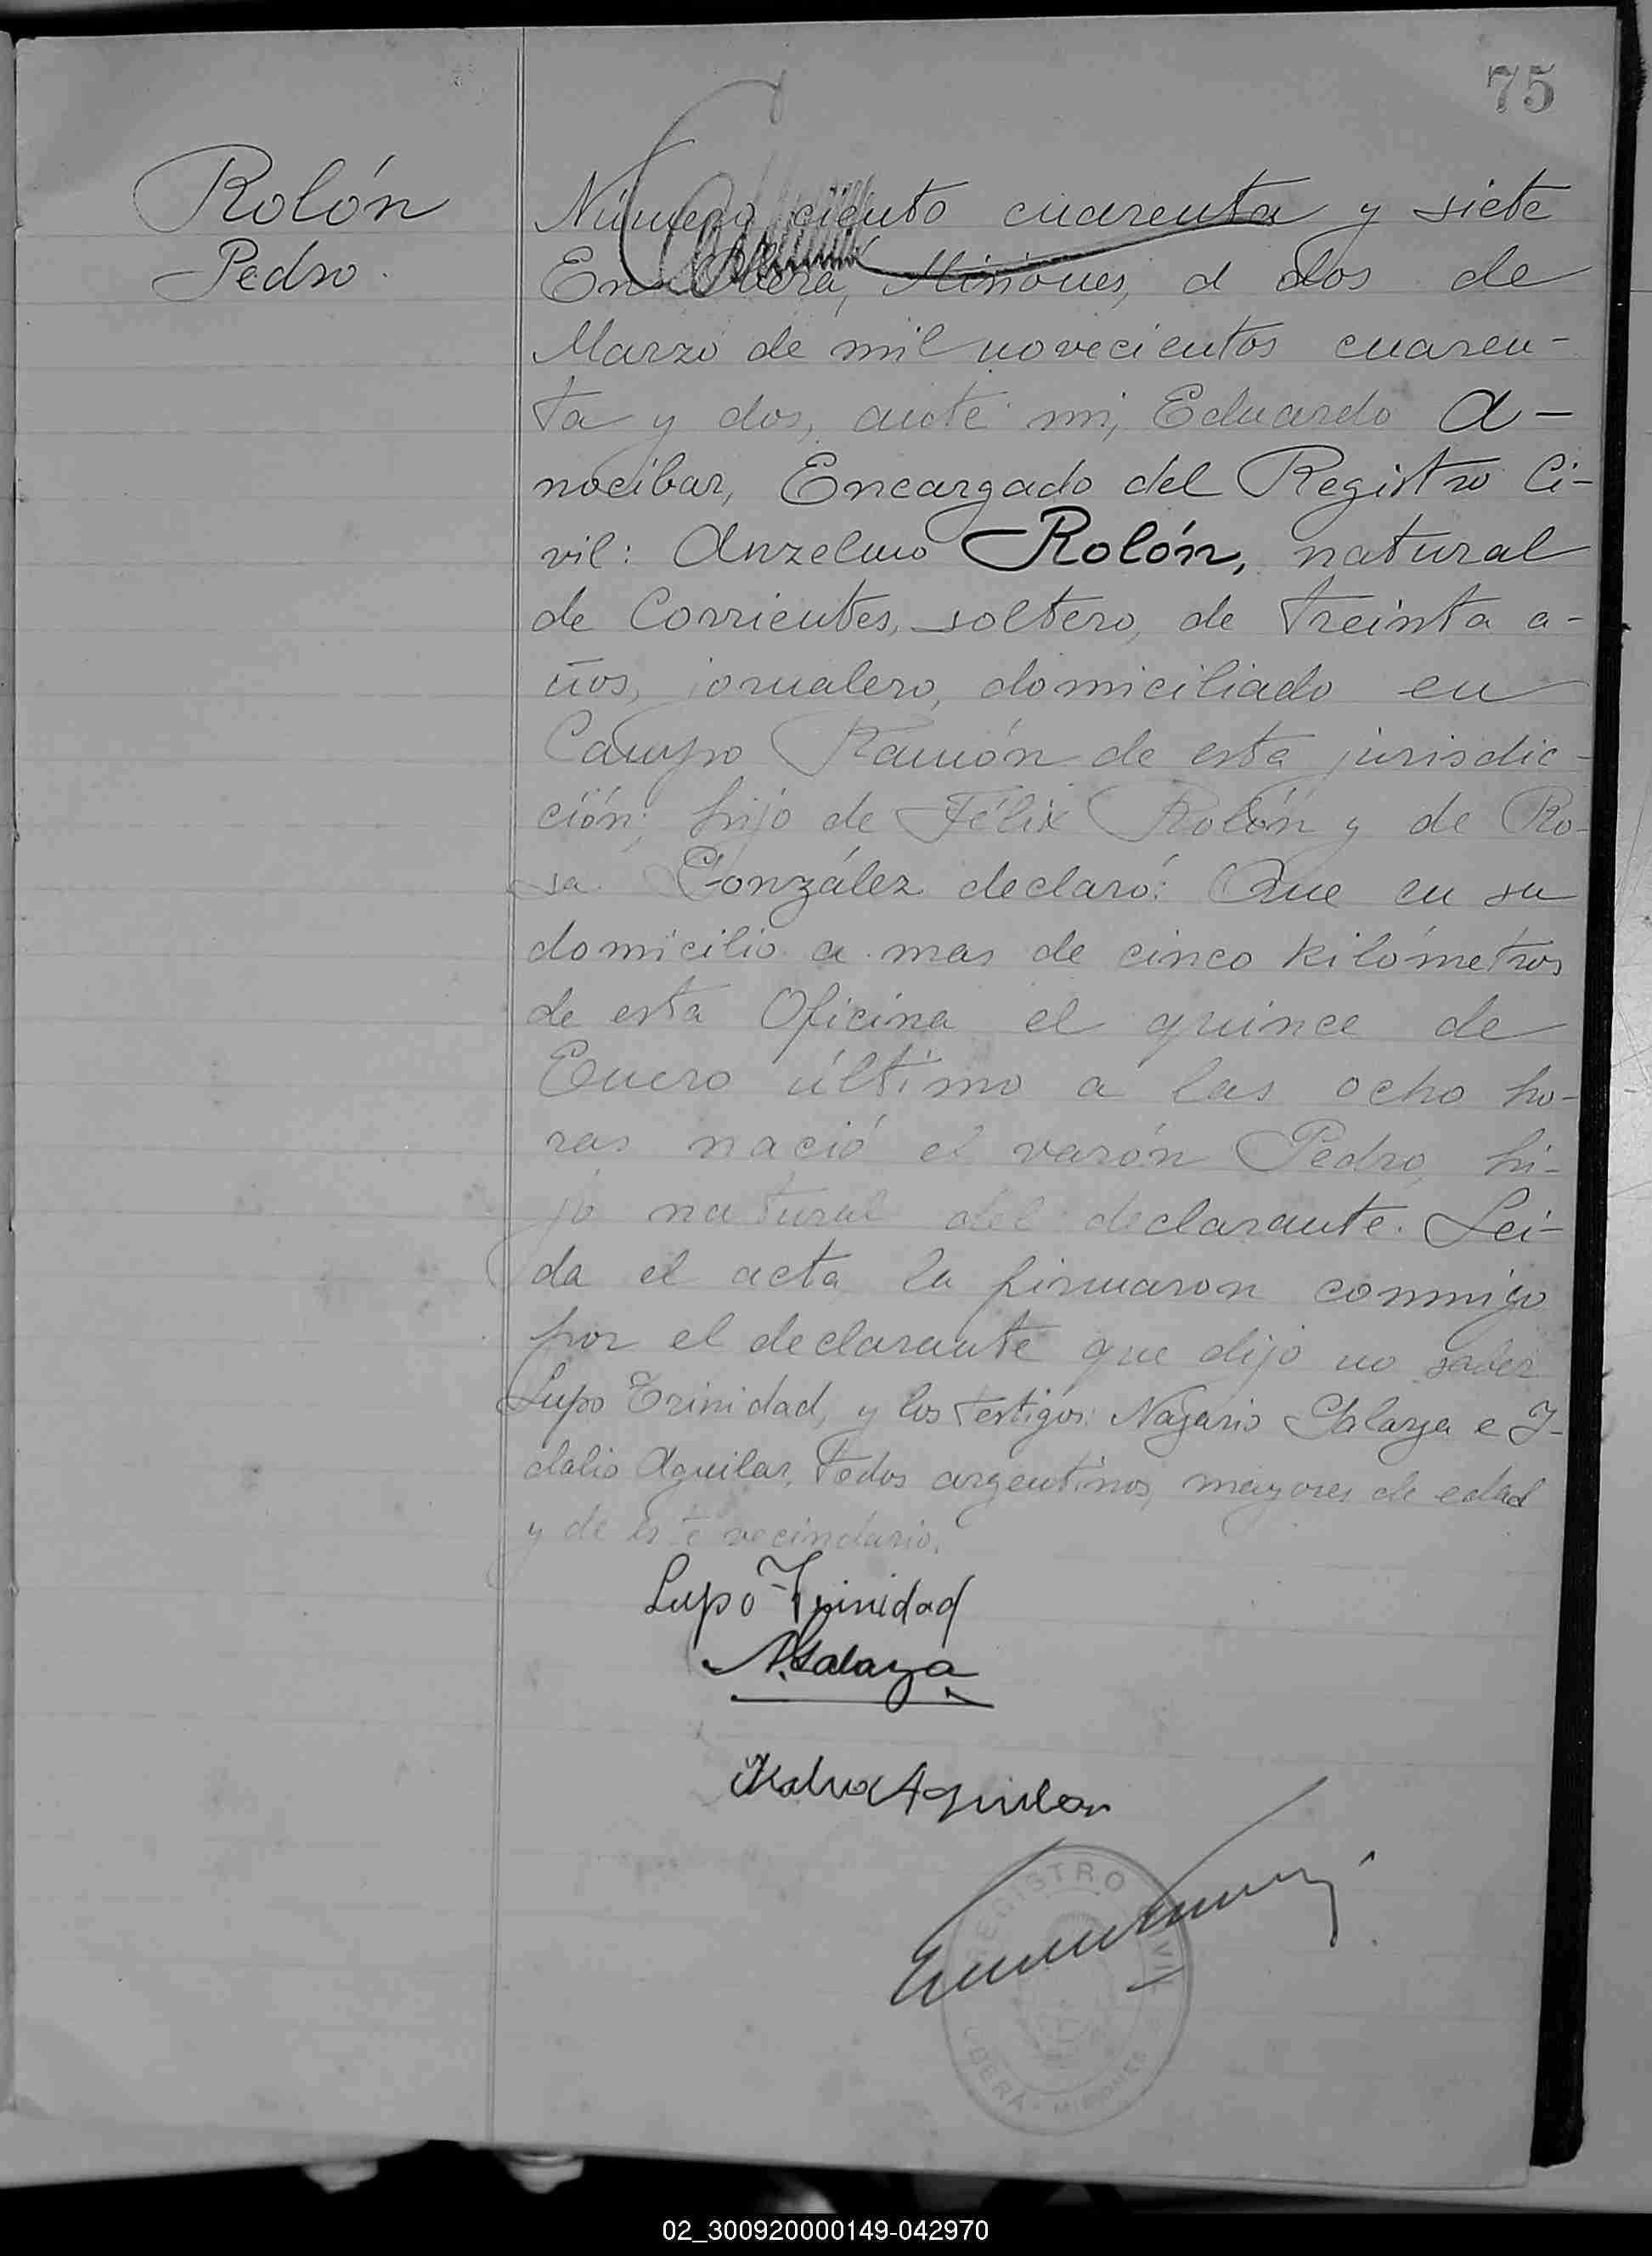 75
Rolón
Pedro.
Número ciento cuarenta y siete
En Oberá, Misiones, a dos de
Marzo de mil novecientos cuaren-
ta y dos, ante mi, Eduardo A-
nocibar, Encargado del Registro Ci-
vil: Anzelmo Rolón, natural
de Corrientes, soltero, de treinta a-
ños, jornalero, domiciliado en
Campo Ramón de esta jurisdic-
ción; hijo de Félix Rolón y de Ro-
sa González declaró: Que en su
domicilio a mas de cinco kilómetros
de esta Oficina el quince de
Enero último a las ocho ho-
ras nació el varón Pedro, hi-
jo natural del declarante. Lei-
da el acta la firmaron conmigo
por el declarante que dijo no saber
Lupo Trinidad, y los testigos: Nazario Galarza e I-
dalio Aguilar, todos argentinos, mayores de edad
y de este vecindario.
Lupo Trinidad
N. Galarza
Idalio Aguilar
REGISTRO CIVIL
OBERÁ - MISIONES
02_300920000149-042970